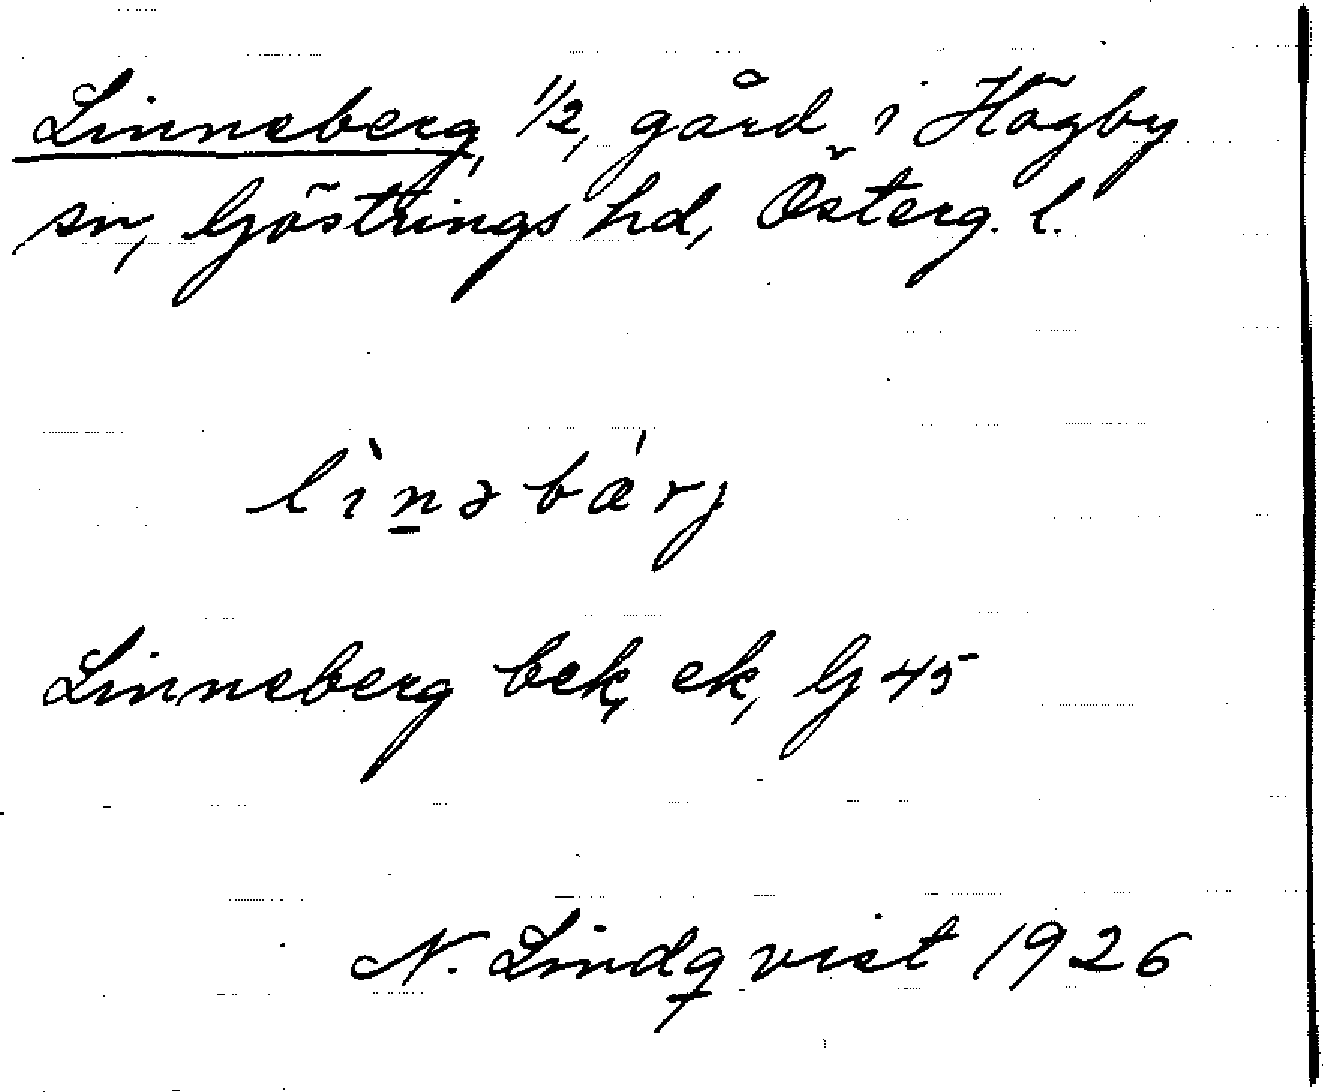 Linneberg, 1/2, gård i Högby
sn, Göstrings hd, Österg. l.
lìnəbá̈rj
Linneberg bek, ek, G 45
N. Lindqvist 1926